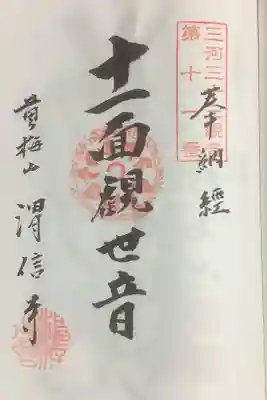 三河三
第十一番
納經
十一面觀世音
黄梅山 渭信寺